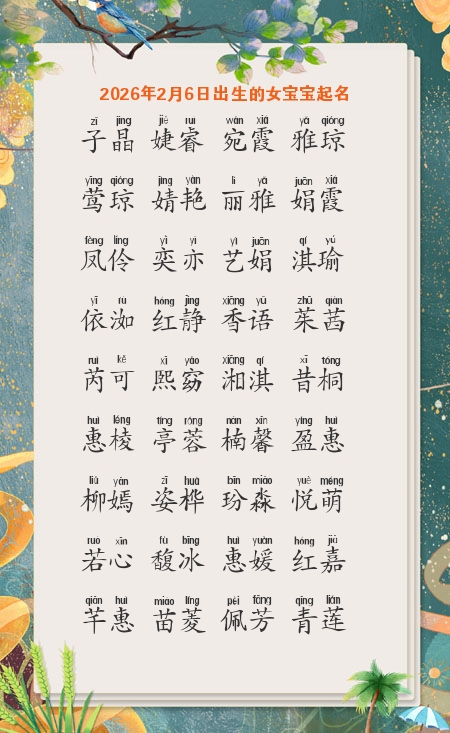 2026年2月6日出生的女宝宝起名
zǐ jīng jié ruì wǎn xiá yǎ qióng
子晶 婕睿 宛霞 雅琼
yīng qióng jìng yàn lì yǎ juān xiá
莺琼 婧艳 丽雅 娟霞
fèng líng yì yì yì juān qí yú
凤伶 奕亦 艺娟 淇瑜
yī rú hóng jìng xiāng yǔ zhū qiàn
依洳 红静 香语 茱茜
ruì kě xī yǎo xiāng qí xī tóng
芮可 熙窈 湘淇 昔桐
huì léng tíng róng nán xīn yíng huì
惠棱 亭蓉 楠馨 盈惠
liǔ yān zī huà bīn miǎo yuè méng
柳嫣 姿桦 玢淼 悦萌
ruò xīn fù bīng huì yuàn hóng jiā
若心 馥冰 惠媛 红嘉
qiān huì miáo líng pèi fāng qīng lián
芊惠 苗菱 佩芳 青莲